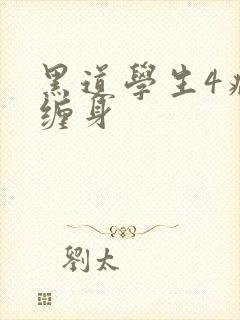 黑道學生4
缠身
劉太